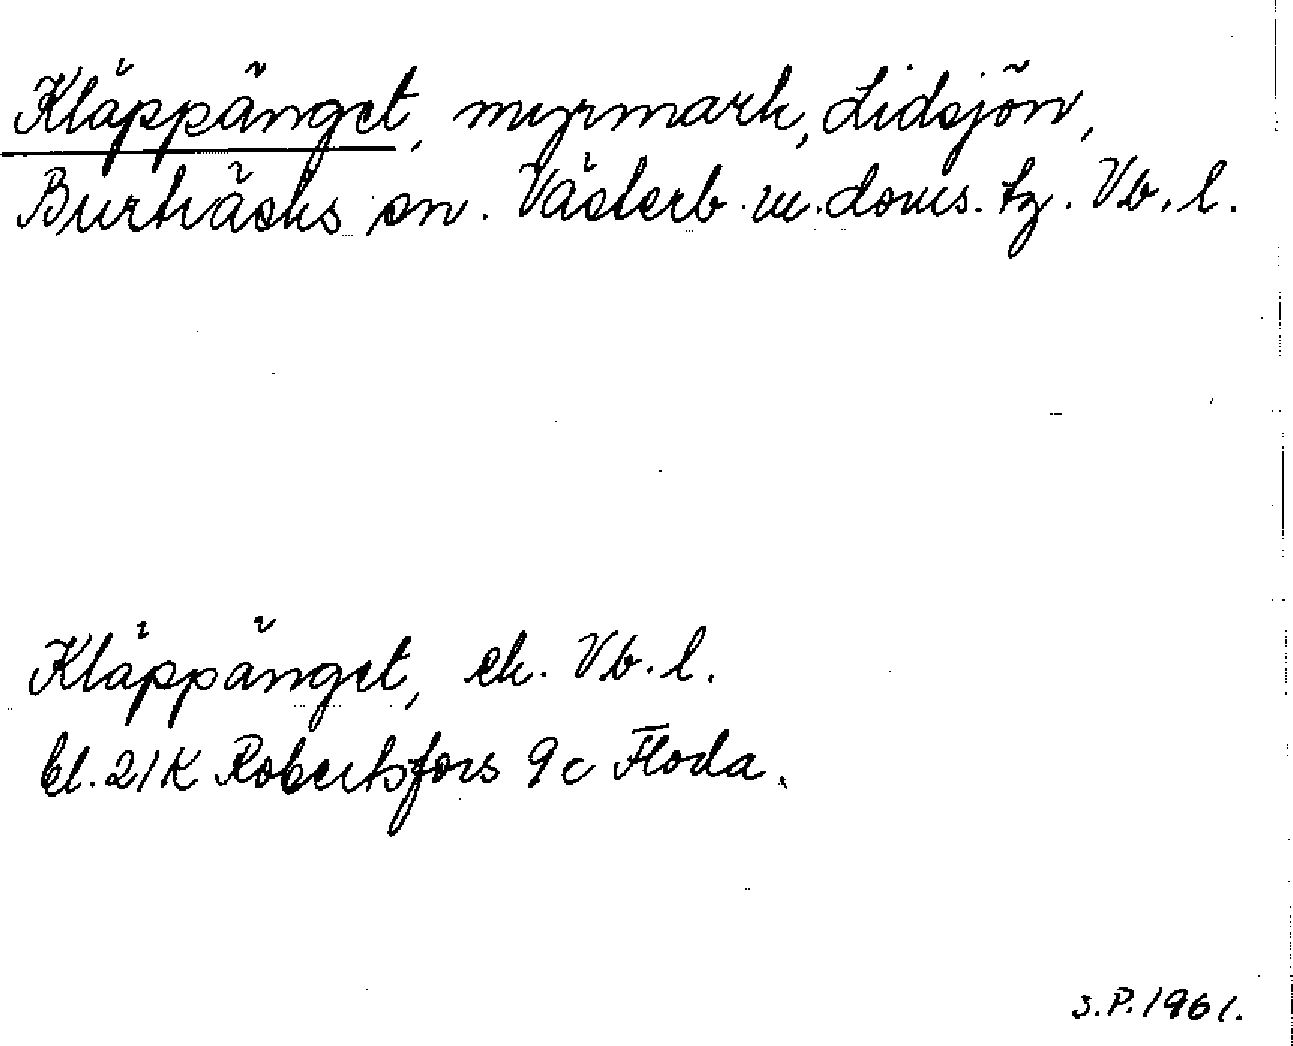 Kläppänget, myrmark, Lidsjön,
Burträsks sn. Västerb. m. doms. tg. Vb. l.
Kläppänget, ek. Vb. l.
bl. 21K Robertsfors 9c Floda.
S.P. 1961.